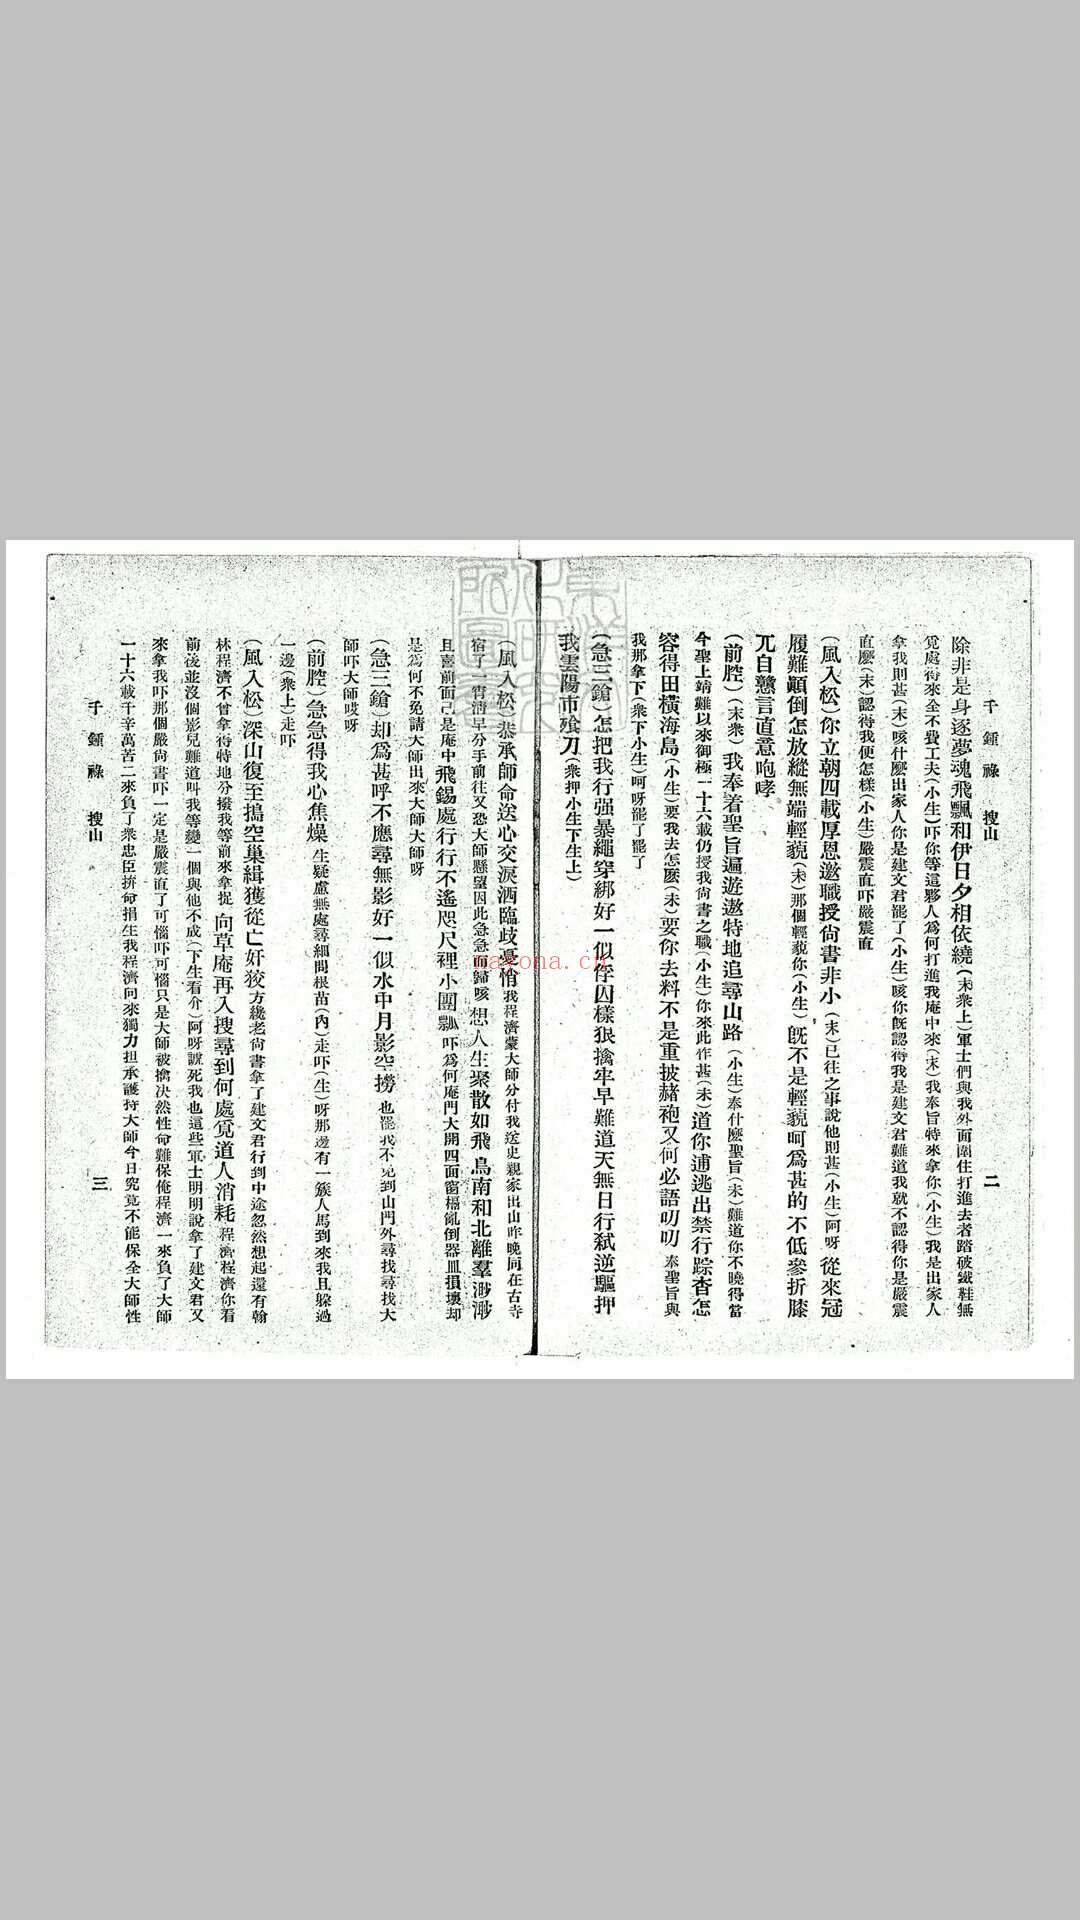 千鍾祿 搜山 二
除非是身逐夢魂飛飄和伊日夕相依繞(末衆上)軍士們與我外面圍住打進去者踏破鐵鞋無
覓處得來全不費工夫(小生)吓你等這夥人爲何打進我庵中來(末)我奉旨特來拿你(小生)我是出家人
拿我則甚(末)咳什麽出家人你是建文君罷了(小生)咳你旣認得我是建文君難道我就不認得你是嚴震
直麽(末)認得我便怎樣(小生)嚴震直吓嚴震直
(風入松)你立朝四載厚恩邀職授尙書非小(末)已往之事說他則甚(小生)阿呀從來冠
履難顚倒怎放縱無端輕藐(末)那個輕藐你(小生)旣不是輕藐呵爲甚的不低參折膝
兀自戇言直意咆哮
(前腔)(末衆)我奉着聖旨遍遊遨特地追尋山路(小生)奉什麽聖旨(末)難道你不曉得當
今聖上靖難以來御極一十六載仍授我尙書之職(小生)你來此作甚(末)道你逋逃出禁行踪杳怎
容得田橫海島(小生)要我去怎麽(末)要你去料不是重披赭袍又何必語叨叨奉聖旨與
我那拿下(衆下小生)呵呀罷了罷了
(急三鎗)怎把我行强暴繩穿綁好一似俘囚樣狠擒牢早難道天無日行弒逆驅押
我雲陽市飡刀(衆押小生下生上)
(風入松)恭承師命送心交淚洒臨歧憂悄我程濟蒙大師分付我送史親家出山昨晚同在古寺
宿了一宵淸早分手前往又恐大師懸望因此急急而歸咳想人生聚散如飛鳥南和北離羣渺渺
且喜前面已是庵中飛錫處行行不遙咫尺裡小團瓢吓爲何庵門大開四面窗槅亂倒器皿損壞却
是爲何不免請大師出來大師大師呀
(急三鎗)却爲甚呼不應尋無影好一似水中月影空撈也罷我不免到山門外尋找尋找大
師吓大師哎呀
(前腔)急急得我心焦燥生疑慮無處尋細問根苗(內)走吓(生)呀那邊有一簇人馬到來我且躱過
一邊(衆上)走吓
(風入松)深山復至搗空巢緝獲從亡奸狡方纔老尙書拿了建文君行到中途忽然想起還有翰
林程濟不曾拿得特地分撥我等前來拿捉向草庵再入搜尋到何處覓道人消耗程濟程濟你看
前後並沒個影兒難道叫我等變一個與他不成(下生看介)阿呀諕死我也這些軍士明明說拿了建文君又
來拿我吓那個嚴尙書吓一定是嚴震直了可惱吓可惱只是大師被擒决然性命難保俺程濟一來負了大師
一十六載千辛萬苦二來負了衆忠臣拚命捐生我程濟向來獨力担承護持大師今日究竟不能保全大師性
千鍾祿 搜山 三
nayona.cn